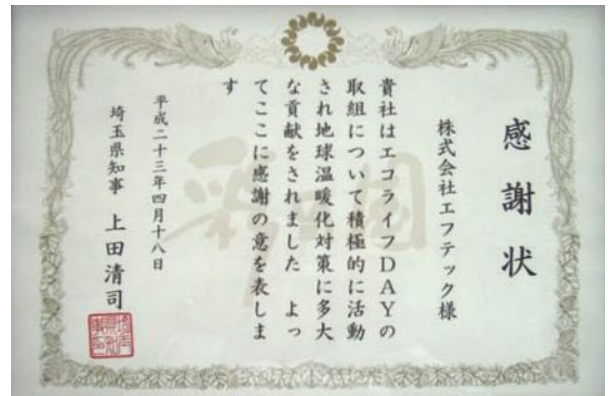 感謝状
株式会社エフテック様
貴社はエコライフDAYの
取組について積極的に活動
され地球温暖化対策に多大
な貢献をされました よっ
てここに感謝の意を表しま
す
平成二十三年四月十八日
埼玉県知事 上田清司